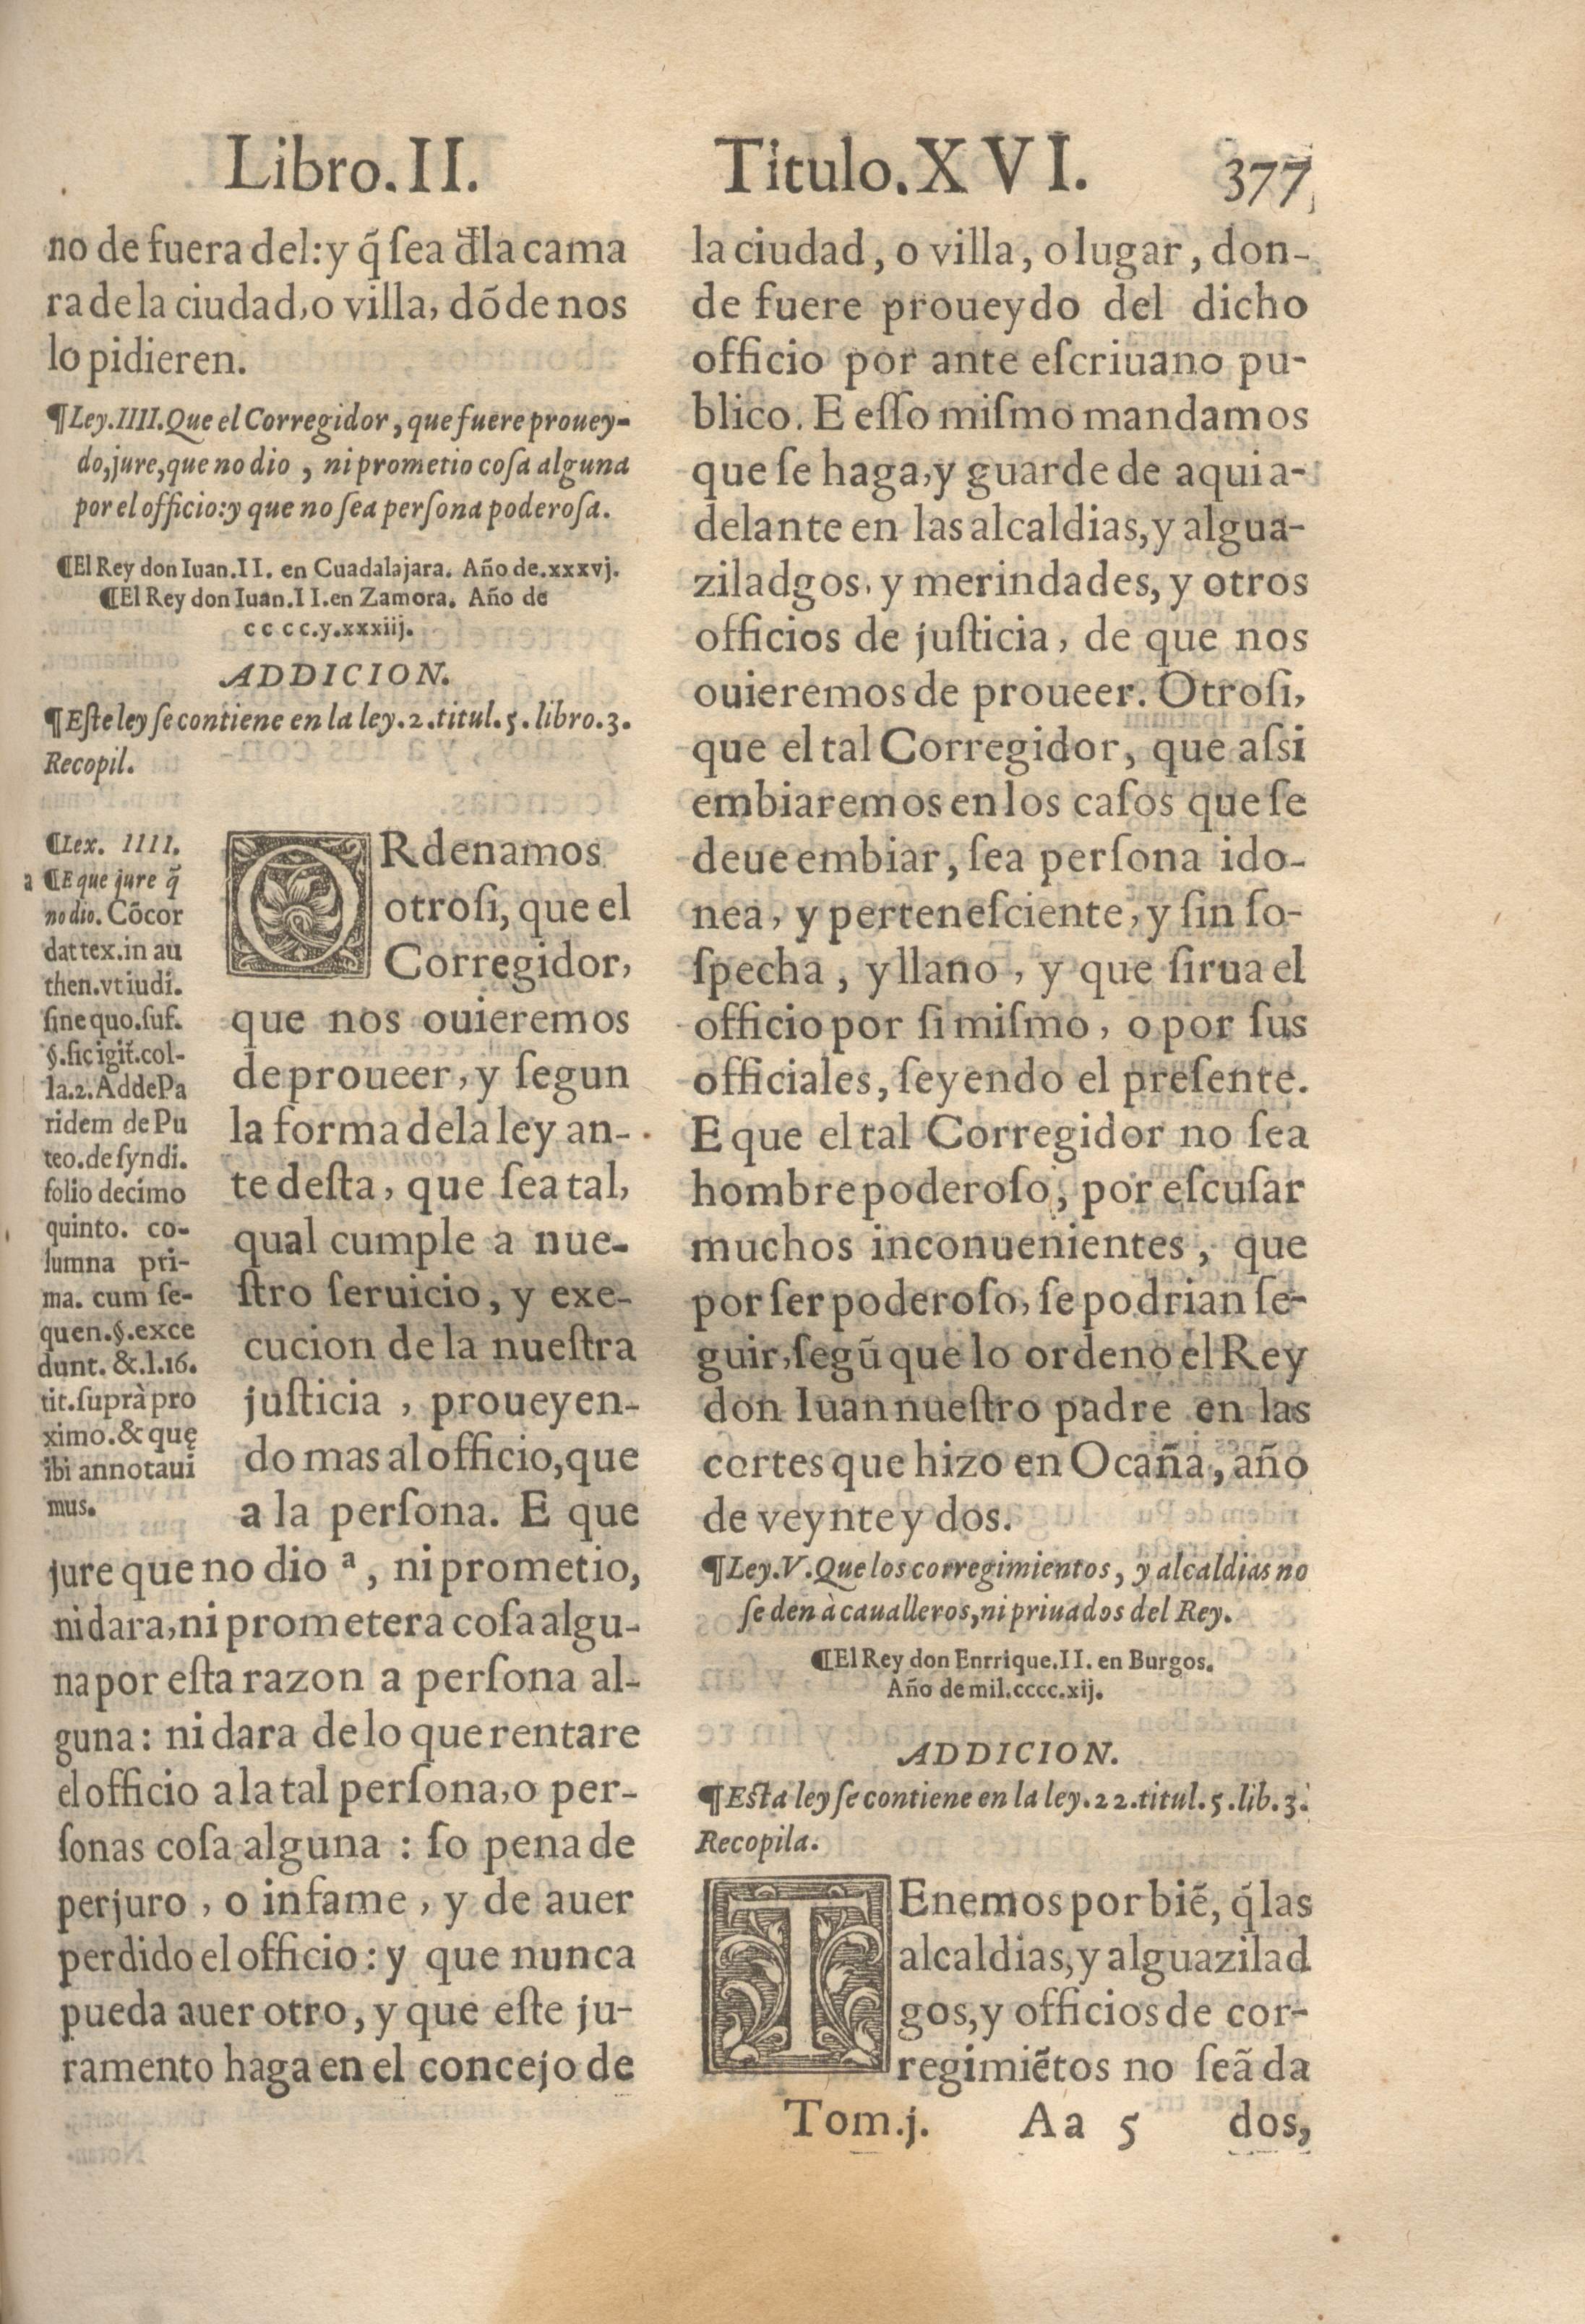 Libro.II. Titulo.XVI. 377
no de fuera del: y q̃ ſea đla cama
ra de la ciudad, o villa, dõde nos
lo pidieren.
¶Ley.IIII.Que el Corregidor, que fuere prouey-
do, jure, que no dio, ni prometio coſa alguna
por el officio: y que no ſea perſona poderoſa.
¶El Rey don Iuan.II. en Cuadalajara. Año de.xxxvj.
¶El Rey don Iuan.II.en Zamora. Año de
cccc.y.xxxiij.
ADDICION.
¶Eſte ley ſe contiene en la ley.2.titul.5.libro.3.
Recopil.
¶Lex. IIII.
a ¶E que jure q̃
no dio. Cõcor
dat tex.in au
then.vt iudi.
ſine quo.ſuf.
§.ſic igit̃.col-
la.2.Adde Pa
ridem de Pu
teo.de ſyndi.
folio decimo
quinto. co-
lumna pri-
ma. cum ſe-
quen.§.exce
dunt. &.l.16.
tit.ſuprà pro
ximo.& quę
ibi annotaui
mus.
ORdenamos
otroſi, que el
Corregidor,
que nos ouieremos
de proueer, y ſegun
la forma dela ley an-
te deſta, que ſea tal,
qual cumple a nue-
ſtro ſeruicio, y exe-
cucion de la nueſtra
juſticia, proueyen-
do mas al officio, que
a la perſona. E que
jure que no dio ª, ni prometio,
ni dara, ni prometera coſa algu-
na por eſta razon a perſona al-
guna: ni dara de lo que rentare
el officio a la tal perſona, o per-
ſonas coſa alguna : ſo pena de
perjuro, o infame, y de auer
perdido el officio: y que nunca
pueda auer otro, y que eſte ju-
ramento haga en el concejo de
la ciudad, o villa, o lugar, don-
de fuere proueydo del dicho
officio por ante eſcriuano pu-
blico. E eſſo miſmo mandamos
que ſe haga, y guarde de aqui a-
delante en las alcaldias, y algua-
ziladgos, y merindades, y otros
officios de juſticia, de que nos
ouieremos de proueer. Otroſi,
que el tal Corregidor, que aſsi
embiaremos en los caſos que ſe
deue embiar, ſea perſona ido-
nea, y perteneſciente, y ſin ſo-
ſpecha, y llano, y que ſirua el
officio por ſi miſmo, o por ſus
officiales, ſeyendo el preſente.
E que el tal Corregidor no ſea
hombre poderoſo, por eſcuſar
muchos inconuenientes, que
por ſer poderoſo, ſe podrian ſe-
guir, ſegũ que lo ordeno el Rey
don Iuan nueſtro padre en las
cortes que hizo en Ocaña, año
de veynte y dos.
¶Ley.V.Que los corregimientos, y alcaldias no
ſe den à caualleros, ni priuados del Rey.
¶El Rey don Enrrique.II. en Burgos.
Año de mil.cccc.xij.
ADDICION.
¶Eſta ley ſe contiene en la ley.22.titul.5.lib.3.
Recopila.
TEnemos por biẽ, q̃ las
alcaldias, y alguazilad
gos, y officios de cor-
regimiẽtos no ſeã da
Tom.j. Aa 5 dos,